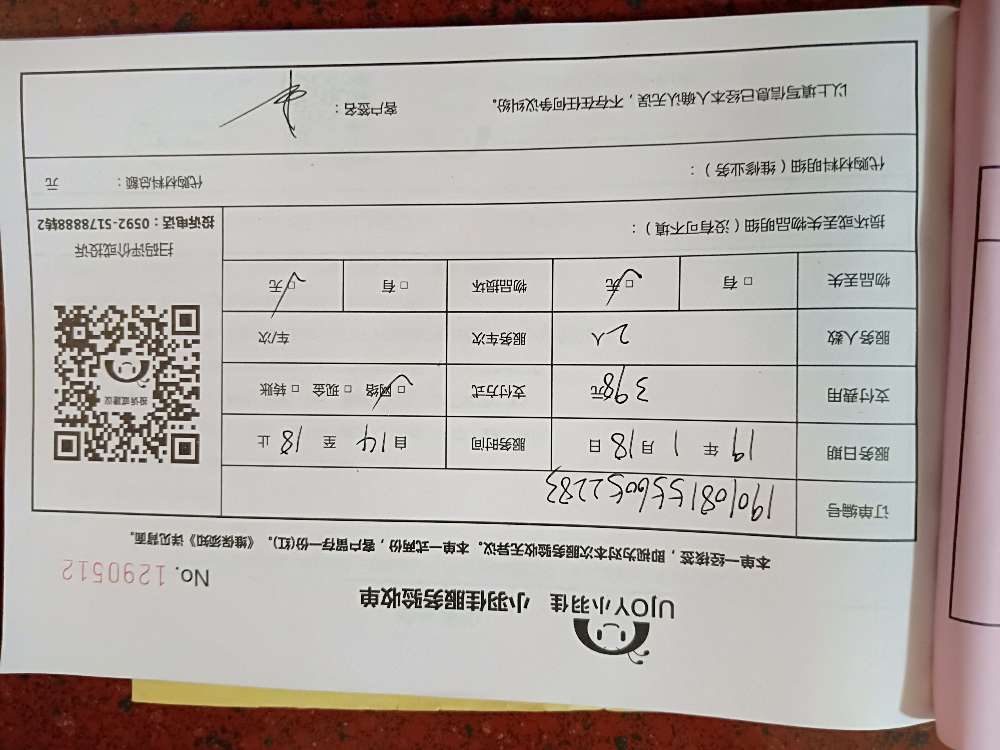 UJOY小羽佳 小羽佳服务验收单
No. 1290512
本单一经接签，即视为对本次服务验收无异议。本单一式两份，客户留存一份(红)。《维保须知》详见背面。
订单编号 190108155605 2283
服务日期 19 年 1 月 18 日 服务时间 自 14 至 18 止
支付费用 398元 支付方式 □ 网络 □ 现金 □ 转账
服务人数 2人 服务车次 车/次
物品丢失 □ 有 □ 无 物品损坏 □ 有 □ 无
损坏或丢失物品明细（没有可不填）：
投诉或建议
扫码评价或投诉
投诉电话：0592-5178888转2
代购材料明细（维修业务）： 代购材料总额： 元
以上填写信息已经本人确认无误，不存在任何争议纠纷。 客户签名：